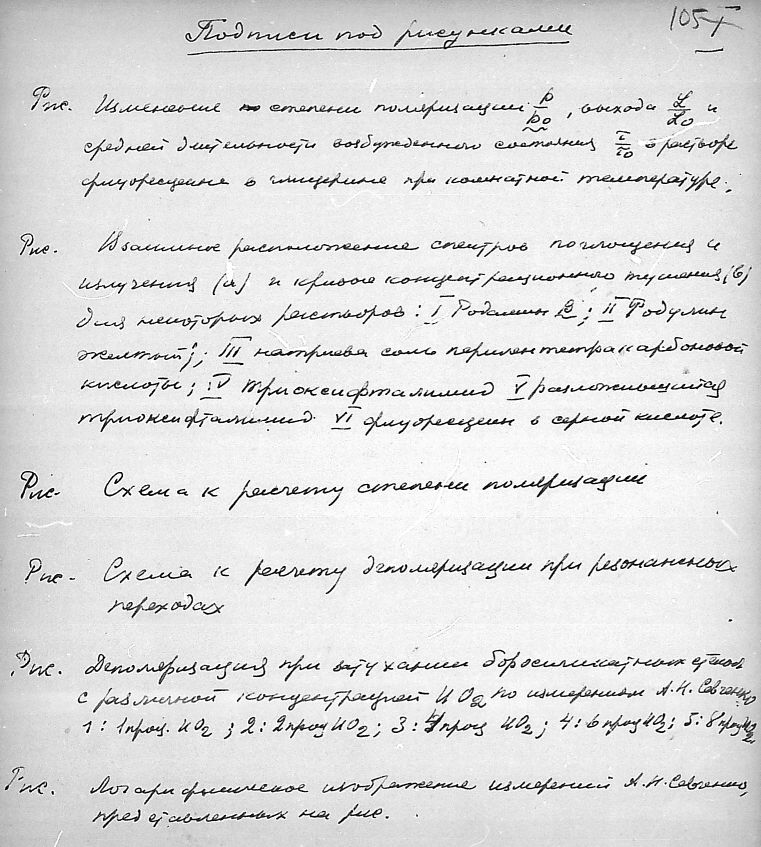 105 I
Подписи под рисунками
Рис. Изменение степени поляризации p/p0, выхода L/L0 и
средней длительности возбужденного состояния τ/τ0 в растворе
флуоресцеина в глицерине при комнатной температуре.
Рис. Взаимное расположение спектров поглощения и
излучения (а) и кривые концентрационного тушения (б)
для некоторых растворов: I Родамин B; II Родулин
желтый; III натриева соль перилентетракарбоновой
кислоты; IV триоксифталимид V разложившийся
триоксифталимид VI флуоресцеин в серной кислоте.
Рис. Схема к расчету степени поляризации
Рис. Схема к расчету деполяризации при резонансных
переходах
Рис. Деполяризация при затухании боросиликатных стекол
с различной концентрацией UO2 по измерениям А.Н. Севченко
1: 1 проц. UO2; 2: 2 проц UO2; 3: 4 проц UO2; 4: 6 проц UO2; 5: 8 проц UO2
Рис. Логарифмическое изображение измерений А.Н. Севченко,
представленных на рис.